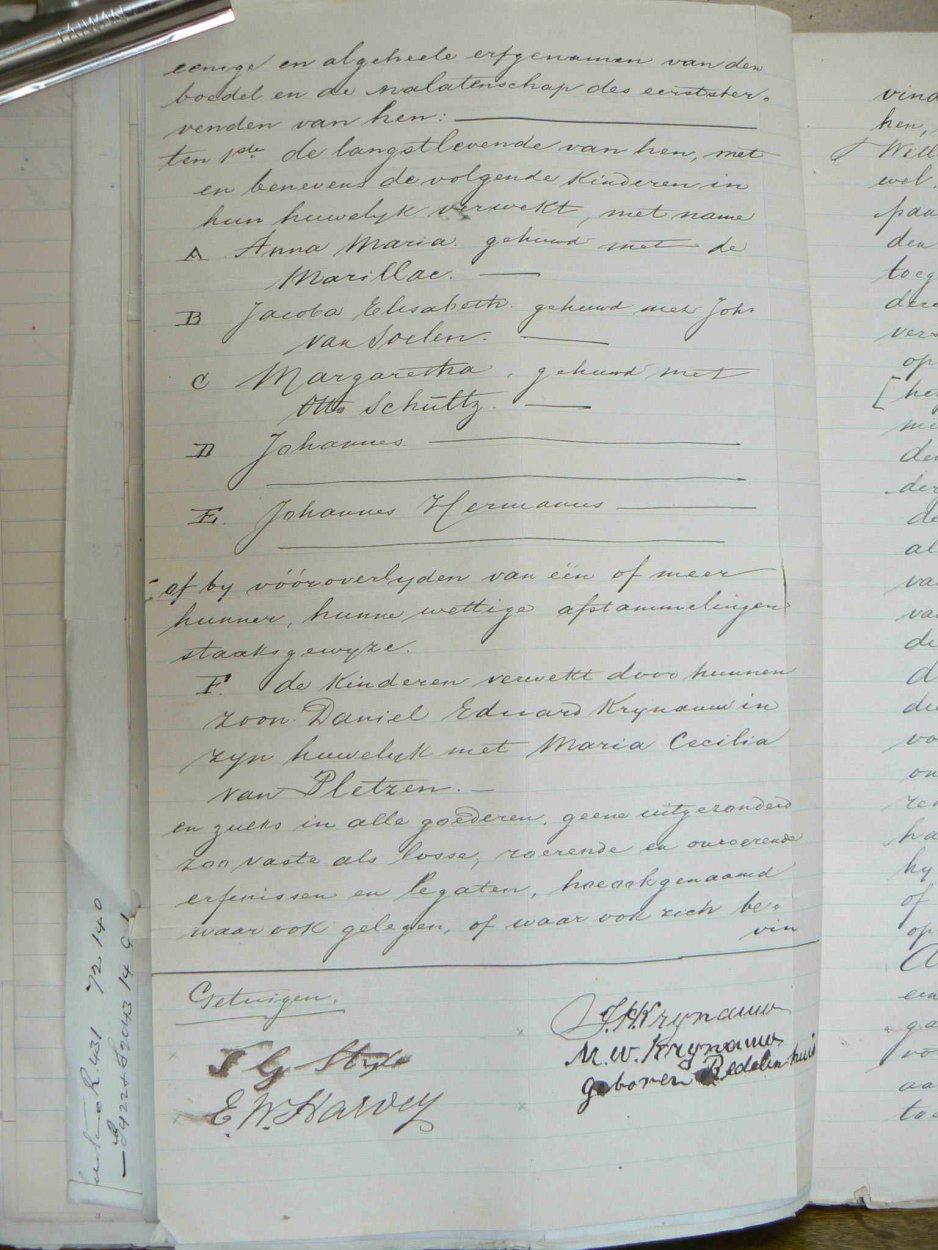 TAIWAN
eenige en algeheele erfgenamen van den
boedel en de nalatenschap des eerstster-
venden van hen:
ten 1ste de langstlevende van hen, met
en benevens de volgende Kinderen in
hun huwelyk verwekt, met name
A Anna Maria. gehuwd met de
Marillac.
B Jacoba Elisabeth. gehuwd met Johs
van Soelen.
C Margaretha, gehuwd met
Otto Schultz.
D Johannes
E. Johannes Hermanus
of by vóóroverlyden van één of meer
hunner, hunne wettige afstammelingen
staaksgewyze.
F de Kinderen verwekt door hunnen
zoon Daniel Eduard Krynauw in
zyn huwelyk met Maria Cecilia
van Pletzen.
en zulks in alle goederen, geene uitgezonderd
zoo vaste als losse, roerende en onroerende
erfenissen en legaten, hoe ook genaamd
waar ook gelegen, of waar ook zich be-
vin
Getuigen.
J.H. Krynauw
M. W. Krynauw
geboren Redelinhuis
E. W. Harvey
vind
hen,
Will
wel
paa
den
toeg
dere
vers
op
[ he
min
den
der
de
al
va
va
de
d
du
vo
on
ren
ha
hy
of
op
een
ga
voo
aa
toe